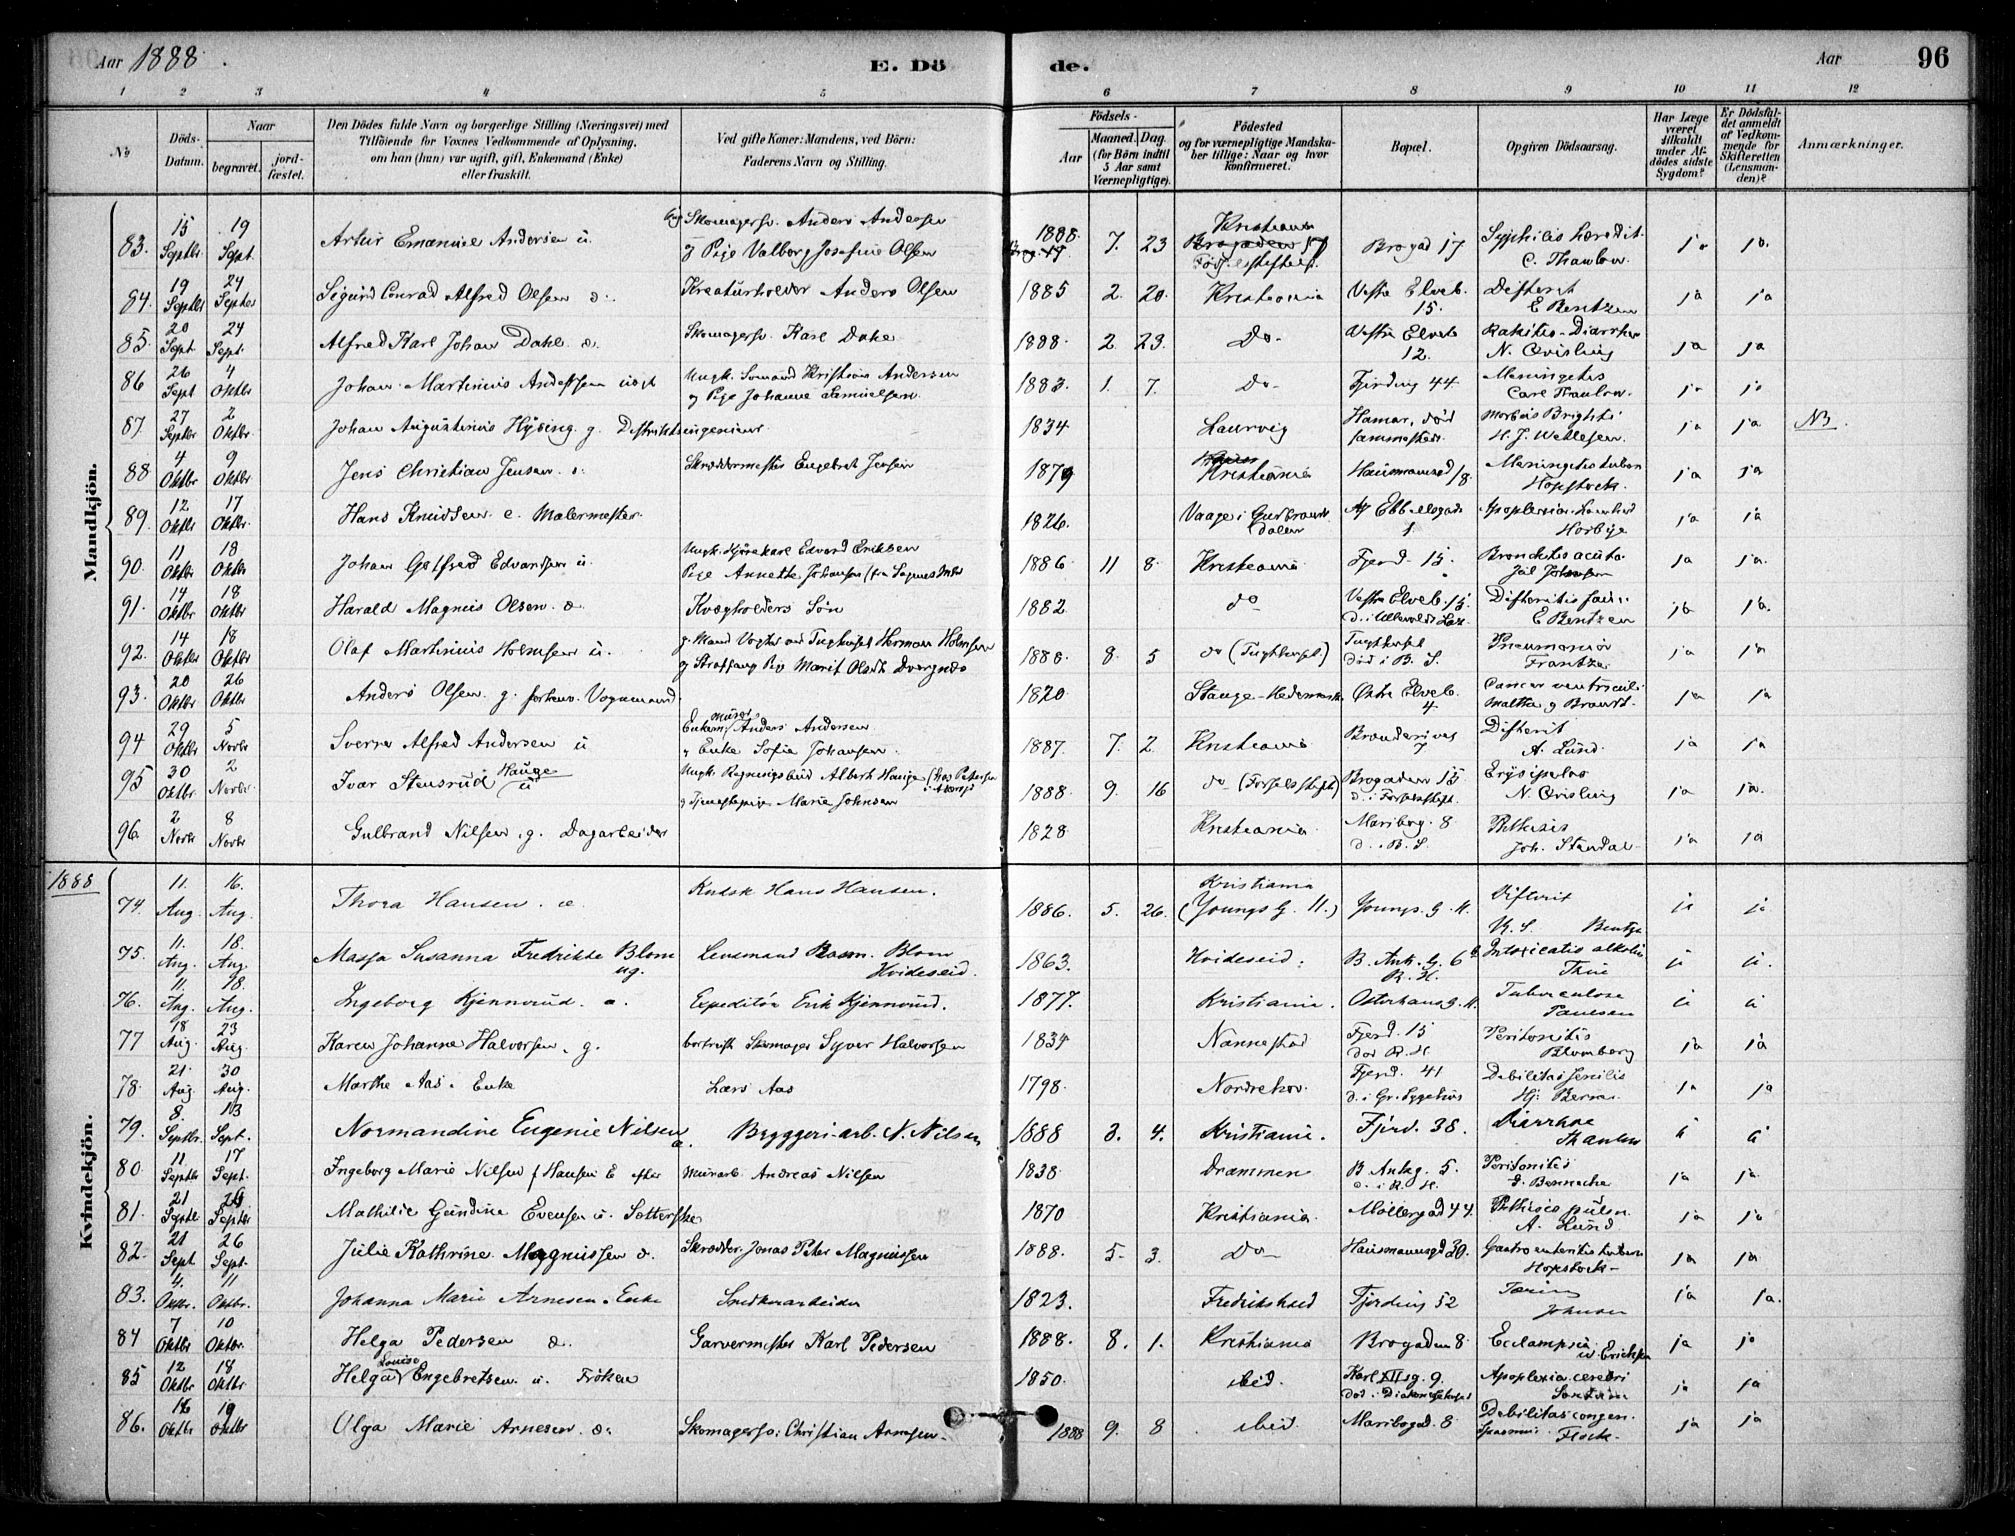 Aar 1888. E. Döde. Aar 96
1 2 3 4 5 6 7 8 9 10 11 12
No
Döds-Datum.
Naar begravet. jordfæstet.
Den Dödes fulde Navn og borgerlige Stilling (Næringsvei) med Tilföiende for Voxnes Vedkommende af Oplysning, om han (hun) var ugift, gift, Enkemand (Enke) eller fraskilt.
Ved gifte Koner: Mandens, ved Börn: Faderens Navn og Stilling.
Födsels- Aar Maaned. Dag. (for Börn indtil 5 Aar samt Værnepligtige).
Födested og for værnepligtige Mandskaber tillige: Naar og hvor konfirmeret.
Bopæl.
Opgiven Dödsaarsag.
Har Læge været tilkaldt under Afdödes sidste Sygdom?
Er Dödsfaldet anmeldt af Vedkommende for Skifteretten (Lensmanden)?
Anmærkninger.
Mandkjön.
83. 15 Septbr. 19 Sept. Artur Emanuel Andersen u. Skomagersv. Anders Andersen og Pige Valborg Josefine Olsen 1888. 7. 23 Kristiania Brogaden 17 Brogad 17 Syphilis heredit. C. Thaulow. ja ja.
84. 19 Septbr 24 Septbr Sigurd Conrad Alfred Olsen Kreaturholder Anders Olsen 1885 2. 20. Kristiania Vestre Elveb. 15. Difterit E Bentzen ja ja
85. 20 Sept. 24 Sept. Alfred Karl Johan Dahl Skomagersv. Karl Dahl 1888. 2. 23. Do Vestre Elveb 12. Rakitis-Diarrhoe N. Qvisling ja ja
86 26 Sept 4 Oktbr Johan Martinius Andersen uægt Ungk. Sømand Kristian Andersen og Pige Johanne Samuelsen. 1883. 1. 7. Do Fjerding 44. Meningitis Carl Thaulow. ja ja
87. 27 Septbr 2 Oktbr. Johan Augustinus Hysing. g. Distriktsingeniør 1834 Laurvig Hamar, død sammesteds Morbus Brightii H. J. Vetlesen. ja ja NB.
88 4 Oktbr 9 Oktbr. Jens Christian Jensen Skræddermester Engebret Jensen 1879 Kristiania Hausmannsgd 18. Meningitis tuberc. Hopstock. ja ja
89. 12 Oktbr 17 Oktbr. Hans Knudsen e. Malermester 1826. Vaage i Gudbrandsdalen 1 Apoplexia Horbye ja ja
90. 11 Oktbr 18 Oktbr. Johan Gotfred Edvardsen u. Ungk. Kjørekarl Edvard Eriksen Pige Annette Johansen 1886 11 8. Kristiania Fjerd. 15. Bronchitis acuta ja ja.
91. 14 Oktbr 18 Oktbr. Harald Magnus Olsen. Kvægholders Søn 1882 do Vestre Elveb. 15. d. i Ullevolds Laz. Difteritis E Bentzen ja ja.
92. 14 Oktbr 18 Oktbr. Olaf Martinius Holmsen u. g. Mand Vogter ved Tugthuset Herman Holmsen og Straffang Pige Marit Olsdt Dvergnes 1888. 8. 5 do (Tugthuset) Tugthuset Død i B. S. Pneumonia Frantzen ja ja
93. 20 Oktbr 26 Oktbr. Anders Olsen. g. forhenv. Vognmand. 1820 Stange-Hedemarken Østre Elveb. 4 Cancer ventriculi Malthe og Brandt. ja ja
94 29 Oktbr 5 Novbr. Sverre Alfred Andersen u Enkem. Murer Anders Andersen og Enke Sofia Johansen. 1887. 7. 2 Kristiania 7 Difterit A. Lund. ja ja
95 30 Oktbr. 2 Novbr. Ivar Stensrud Hauge u Ungk. Regningsbud Albert Hauge og Tjenestepige Marie Johnsen 1888 9. 16 do (Fødselsstift.) Brogaden 15 d. i Fødselsstift. Erysipelas N. Qvisling ja ja.
96. 2 Novbr 8 Novbr Gulbrand Nilsen. g. Dagarbeider 1828 Kristiania. Maribog. 8 d. i B. S. Phthisis Joh. Stendal ja ja
1888
Kvindekjön.
74. 11. Aug. 16. Aug. Thora Hansen. Kudsk Hans Hansen. 1886. 5. 26. Kristiania (Youngs G. 11.) Youngs. G. 11. Difterit Bentzen ja ja
75. 11. Aug. 18. Aug. Massa Susanna Fredrikke Blom ug. Lensmand Rasm. Blom Hvideseid. 1863. Hvideseid. B. Ank. G. 6 R. H. Intoxicatio alkohol. Thue ja ja.
76. 11. Aug. 18. Aug. Ingeborg Kjennerud. Expeditør Erik Kjennerud. 1877. Kristiania. Osterhausg. 11. Tuberculose Paulsen ja ja
77 18 Aug. 23 Aug Karen Johanne Halvorsen. g. bortreist Skomager Syver Halvorsen 1834 Nannestad Fjerd. 15 død R. H Peritonitis Blomberg ja ja
78. 21. Aug 30 Aug. Marthe Aas. Enke Lars Aas 1798. Nordrehov. Fjerd. 41 d. i Gr. Sygehus Debilitas senilis ja ja
79. 8. Septbr. 13 Sept. Normandine Eugenie Nilsen Bryggeri-arb. N. Nilsen 1888 3. 4. Kristiania. Fjerd. 38. Diarrhoe Thaulow ja ja
80. 11 Septbr 17 Sept. Ingeborg Marie Nilsen f Hansen E efter Murarb. Andreas Nilsen 1838. Drammen B Ankg. 5. d. i R. H. Peritonitis ja ja
81. 21 Septbr 26 Septbr Mathilde Gundine Evensen u. 1870 Kristiania. Møllergad 44. Phthisis pulm. A. Lund ja ja
82. 21 Sept. 26 Sept. Julie Kathrine Magnussen Skrædder. Jonas Peter Magnussen 1888. 5. 3. Do Hausmannsgd 30. Gastro enteritis Hopstock ja ja
83. 4. Oktbr. 11 Oktbr. Johanna Marie Arnesen. Enke Snedkerarbeider 1823. Fredrikshald Fjerding 52 Tæring Johnsen ja ja.
84 7 Oktbr 10 Oktbr. Helga Pedersen Garvermester Karl Pedersen 1888. 8. 1. Kristiania Brogaden 8 Eclampsia Erichsen ja ja
85 12 Oktbr 18 Oktbr Helga Louise Engebretsen u. Frøken 1850. ibid. Karl XII g. 9. død i Diakonissehuset Apoplexia cerebri ja ja
86. 16 Oktbr 19 Oktbr Olga Marie Arnesen Skomagersv: Christian Arnesen. 1888 9. 8 ibid. Maribogd. 8 Debilitas congen. Flock. ja ja